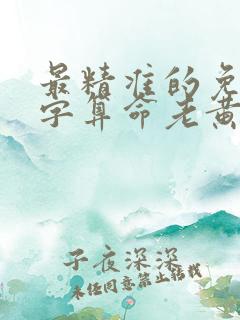 最精准的免
字算命老黄
子夜深深
未经同意禁止转载